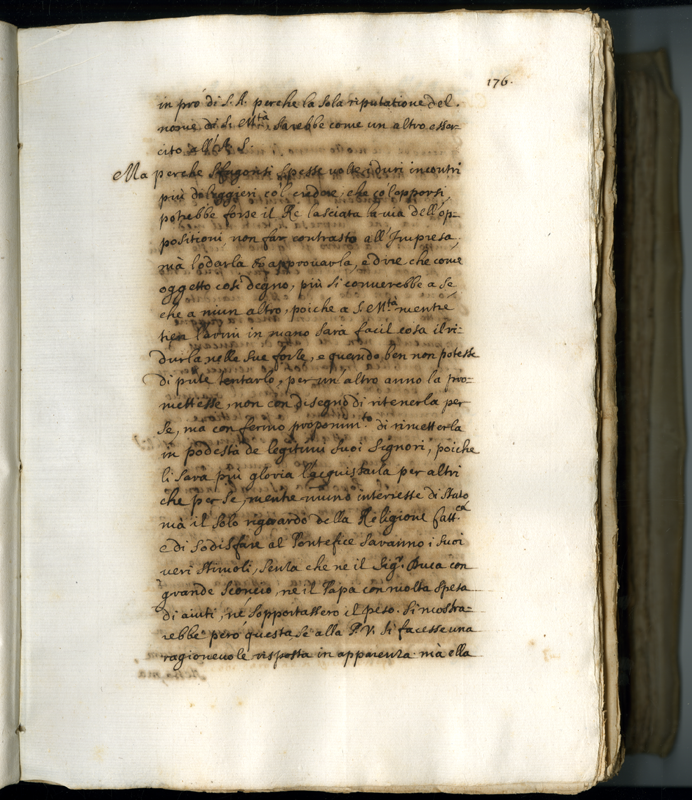 176.
in prò di S. A. perche la sola riputatione del
nome di S. M.tà sarebbe come un altro esser-
cito all'A. S.
Ma perche sfugonsi spesse volte i duri incontri
più di leggieri col cedere che col opporsi,
potrebbe forse il Re lasciata la via dell'op-
positioni non far contrasto all'Impresa,
mà lodarla et approuarla, e dire che come
oggetto così degno, più si conuerebbe a se
che a niun altro, poiche a S. M.tà mentre
tien l'armi in mano sarà facil cosa il ri-
durla nelle sue forze, e quando ben non potesse
di più tentarlo, per un'altro anno la pro-
mettesse, non con disegno di ritenerla per
se, ma con fermo proponim.to di rimetterla
in podestà de legitimi suoi Signori, poiche
li sarà più gloria l'acquistarla per altri
che per se, mentre niuno interesse di stato
mà il solo riguardo della Religione Catt.ca
e di sodisfare al Pontefice saranno i suoi
ueri stimoli, senza che ne il Sig.r Duca con
grande sconcio, ne il Papa con molta spesa
di aiuti, ne sopportassero il peso. Si mostra-
rebbe però questa se alla P. V. si facesse una
ragioneuole risposta in apparenza mà ella